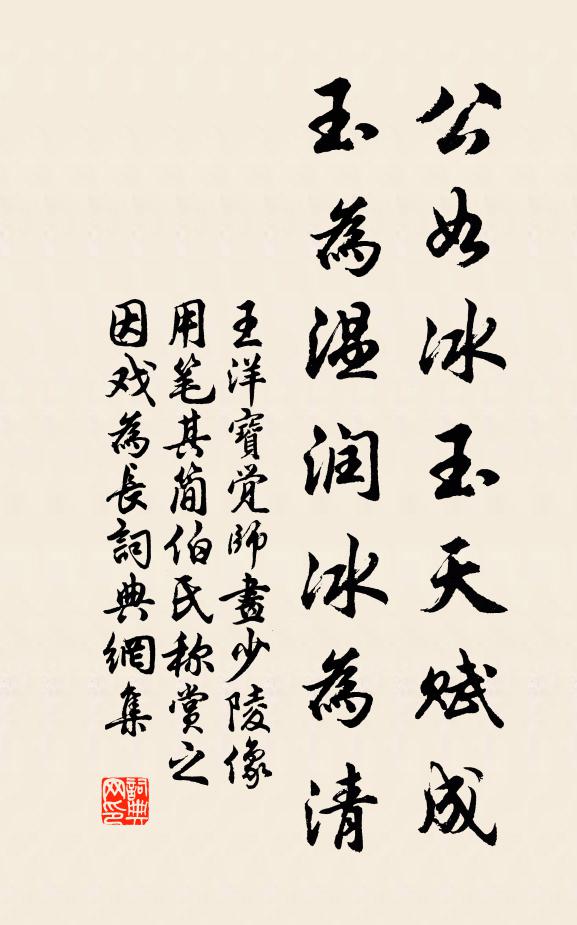 公如冰玉天赋成
玉為温润冰為清
王洋寶觉師畫少陵像
用笔其简伯氏称赏之
因戏為長詞典網集
詞典
网印